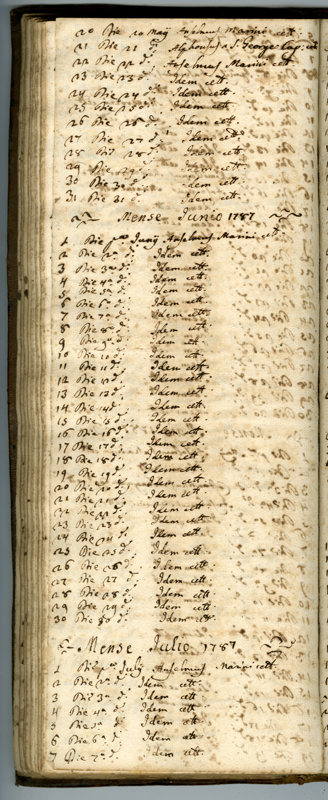 20 Die 20 Maij Anselmus Marini cett.
21 Die 21 d. Alphonsus a S. Georgio Cap. cett
22 Die 22 d. Anselmus Marini cett.
23 Die 23 d. Idem cett.
24 Die 24 d. Idem cett.
25 Die 25 d. Idem cett.
26 Die 26 d. Idem cett.
27 Die 27 d. Idem cett.
28 Die 28 d. Idem cett.
29 Die 29 d. Idem cett.
30 Die 30 d. Idem cett.
31 Die 31 d. Idem cett.
Mense Junio 1787
1 Die pa Junij Anselmus Marini cett.
2 Die 2a d. Idem cett.
3 Die 3a d. Idem cett.
4 Die 4a d. Idem cett.
5 Die 5a d. Idem cett.
6 Die 6a d. Idem cett.
7 Die 7a d. Idem cett.
8 Die 8a d. Idem cett.
9 Die 9a d. Idem cett.
10 Die 10 d. Idem cett.
11 Die 11 d. Idem cett.
12 Die 12 d. Idem cett.
13 Die 13 d. Idem cett.
14 Die 14 d. Idem cett.
15 Die 15 d. Idem cett.
16 Die 16 d. Idem cett.
17 Die 17 d. Idem cett.
18 Die 18 d. Idem cett.
19 Die 19 d. Idem cett.
20 Die 20 d. Idem cett.
21 Die 21 d. Idem cett.
22 Die 22 d. Idem cett.
23 Die 23 d. Idem cett.
24 Die 24 d. Idem cett.
25 Die 25 d. Idem cett.
26 Die 26 d. Idem cett.
27 Die 27 d. Idem cett.
28 Die 28 d. Idem cett.
29 Die 29 d. Idem cett.
30 Die 30 d. Idem cett.
Mense Julio 1787
1 Die pa Julij Anselmus Marini cett.
2 Die 2a d. Idem cett.
3 Die 3a d. Idem cett.
4 Die 4a d. Idem cett.
5 Die 5a d. Idem cett.
6 Die 6a d. Idem cett.
7 Die 7a d. Idem cett.